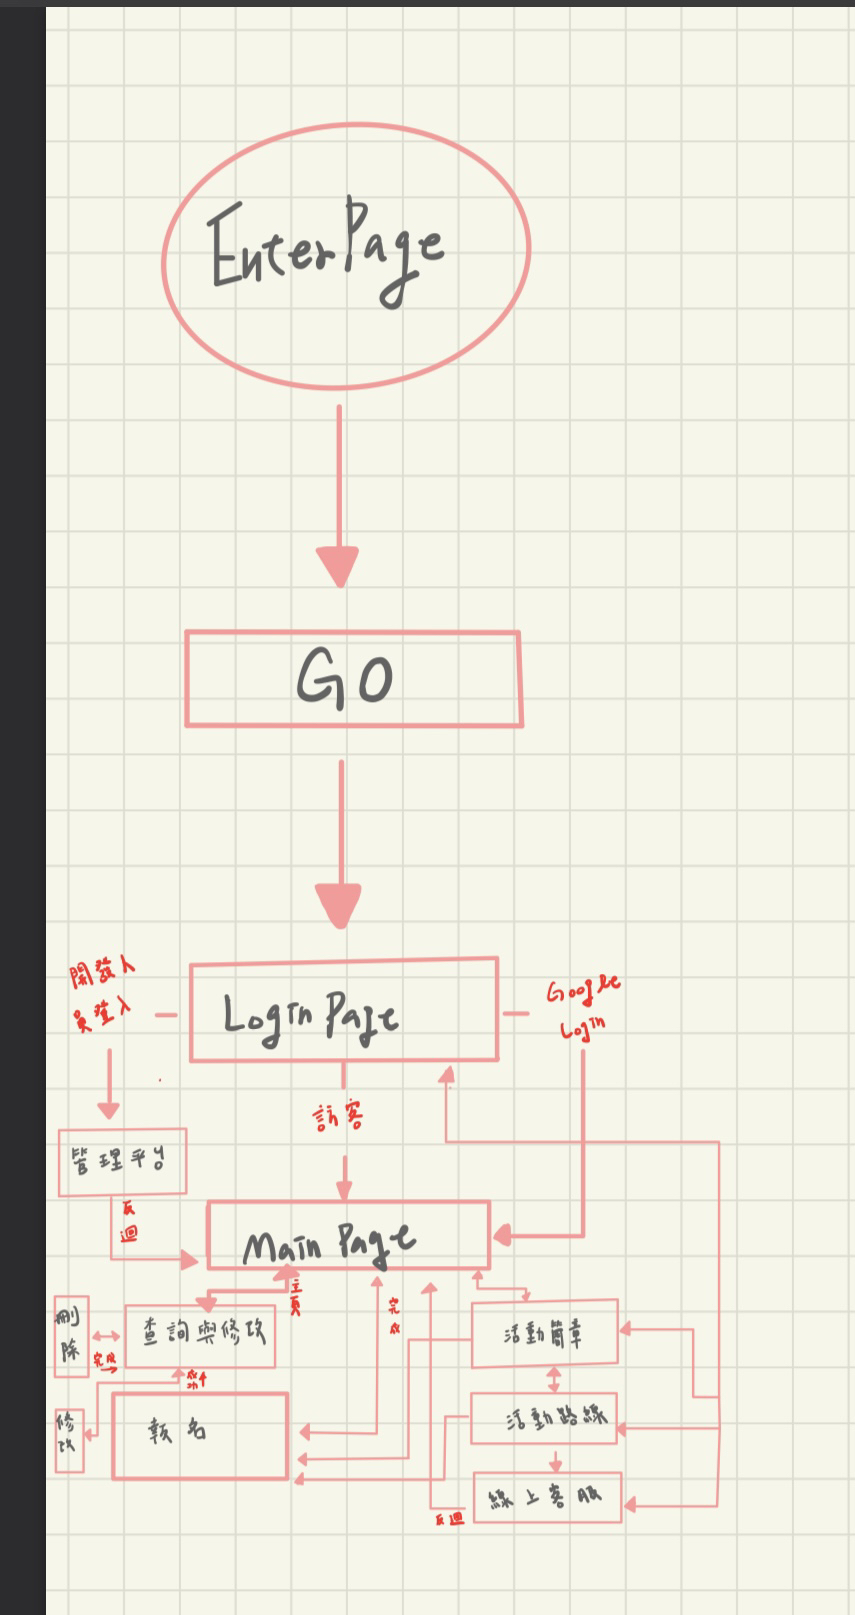 Enter Page
GO
開發人
員登入
Login Page
Google
Login
訪客
管理平台
反
迴
Main Page
主
頁
完
成
刪
除
完成
查詢與修改
成功
修
改
報名
活動簡章
活動路線
線上客服
反迴